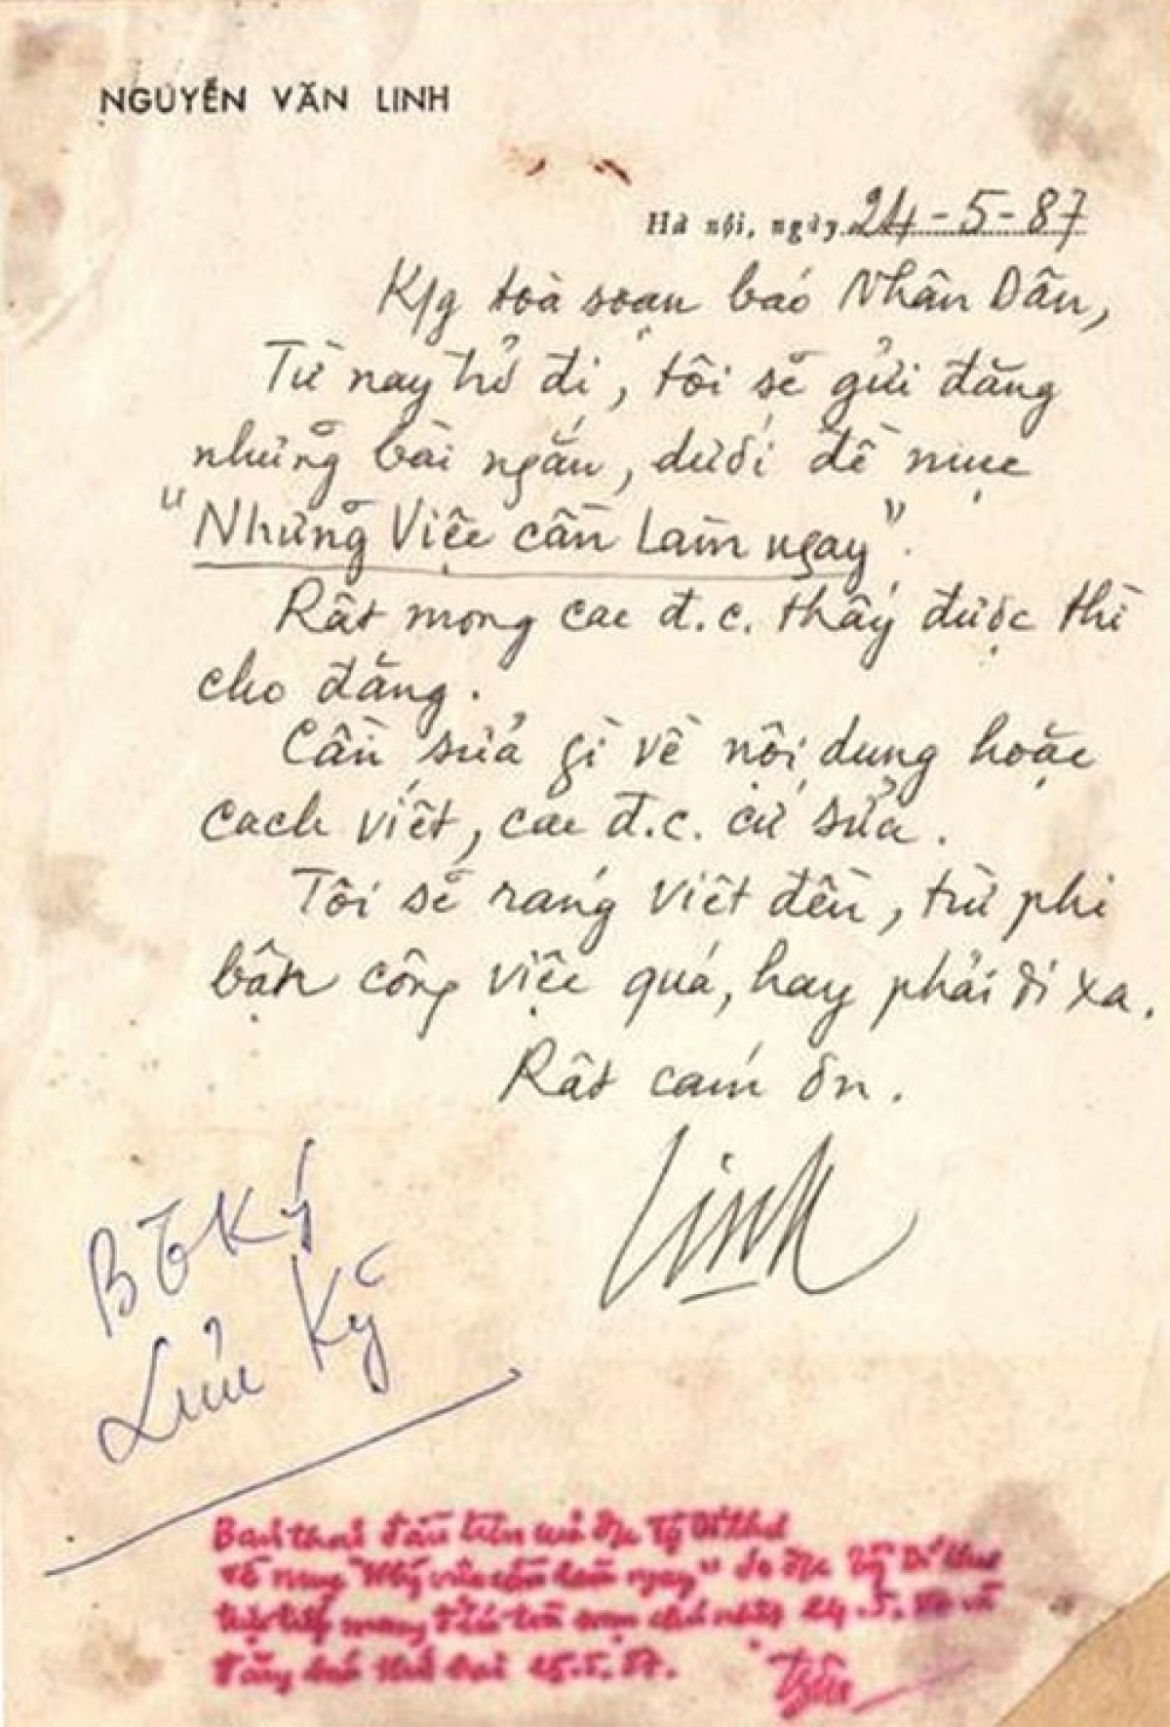 NGUYỄN VĂN LINH
Hà nội, ngày 24-5-87
K/g toà soạn báo Nhân Dân,
Từ nay trở đi, tôi sẽ gửi đăng
những bài ngắn, dưới đề mục
"Những Việc cần Làm ngay".
Rất mong các đ.c. thấy được thì
cho đăng.
Cần sửa gì về nội dung hoặc
cách viết, các đ.c. cứ sửa.
Tôi sẽ ráng viết đều, trừ phi
bận công việc quá, hay phải đi xa.
Rất cám ơn.
Linh
Lưu Kỹ
đầu tiên của đ/c Tổng Bí thư
về mục "cần làm ngay" do đ/c Tổng Bí thư
trực tiếp mang đến toà soạn chủ nhật 24.5. và
đăng báo thứ hai 25.5.87.